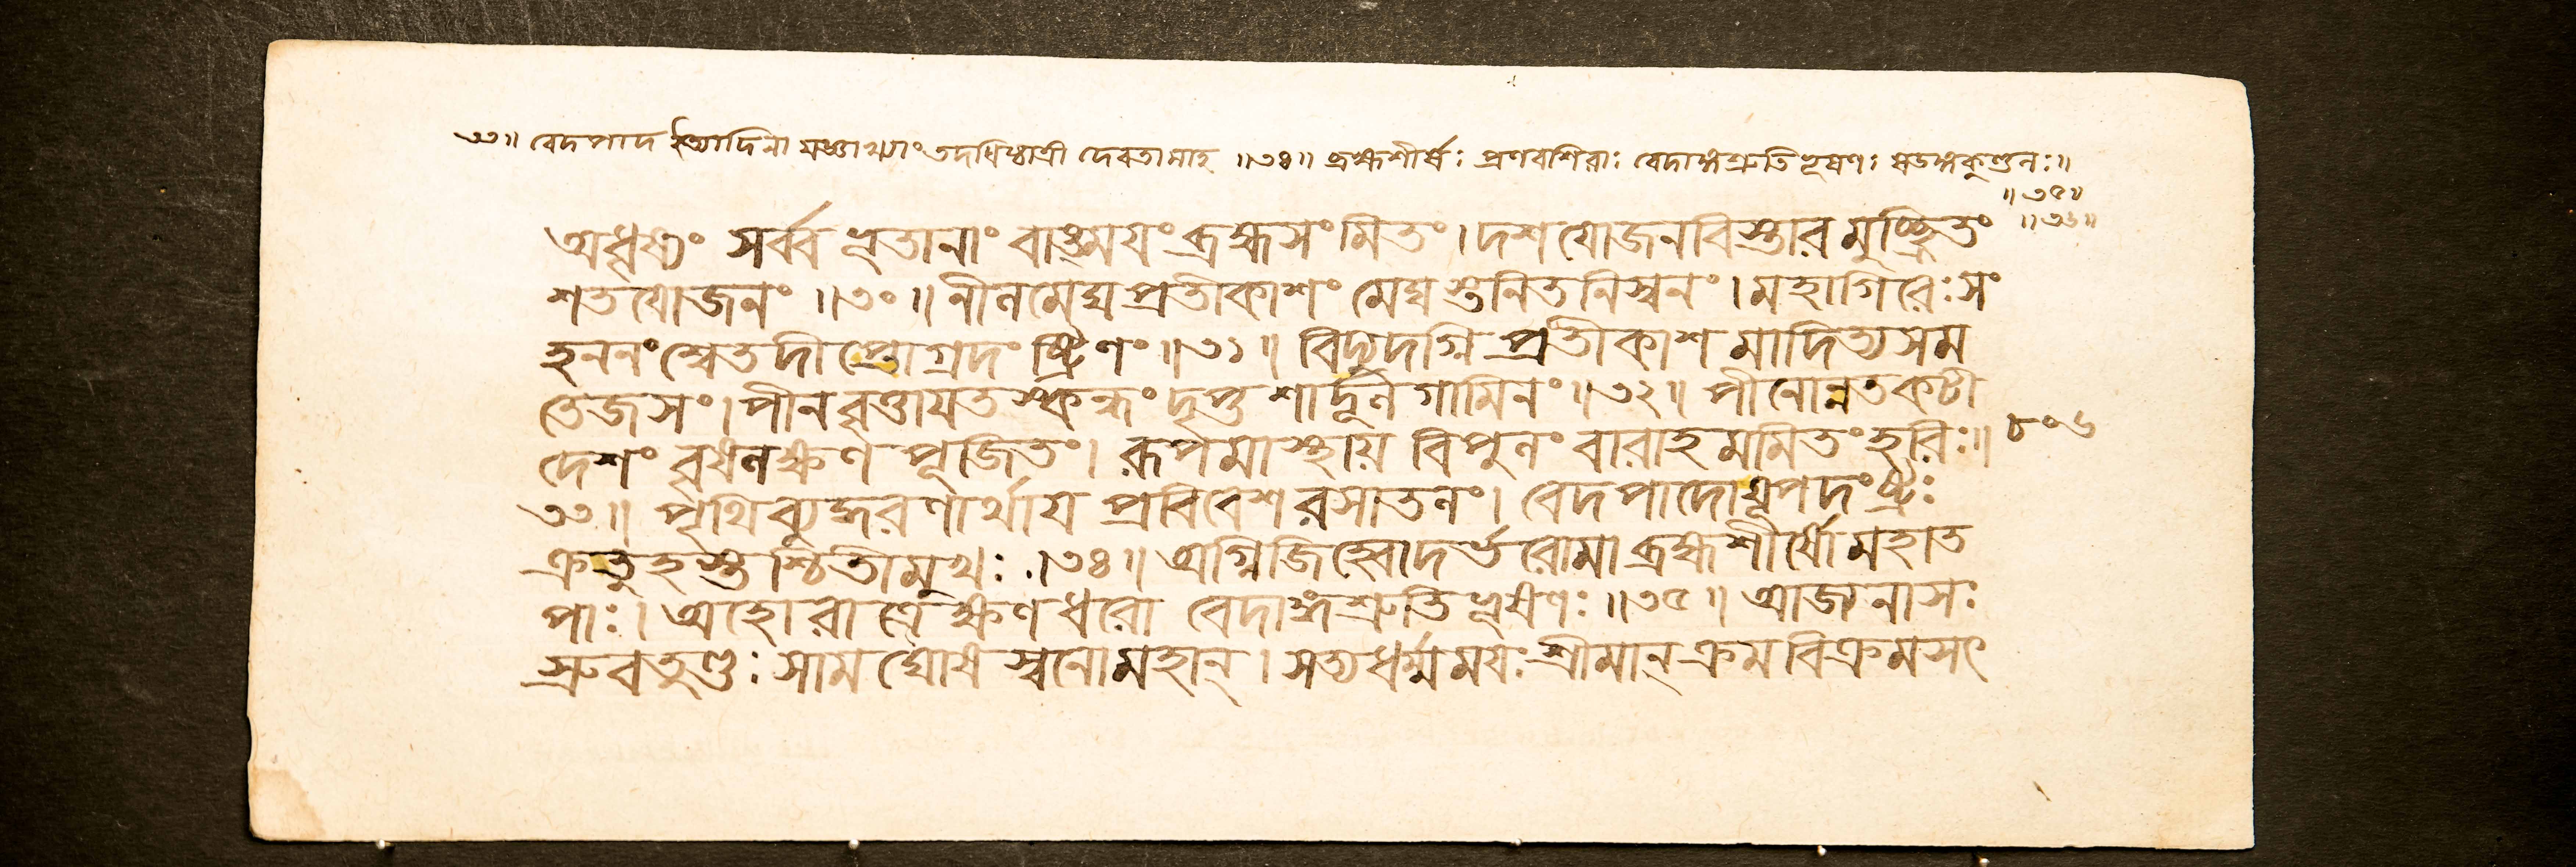 ৩৩॥ বেদপাদ ইত্যাদিনা যজ্ঞাখ্যাং তদধিষ্ঠাত্রী দেবতামাহ ॥৩৪॥ ব্রহ্মশীর্ষঃ প্রণবশিরাঃ বেদাঙ্গশ্রুতিভূষণঃ ষডঙ্গকুণ্ডলঃ॥
॥৩৫॥
॥৩৬॥
অধৃষ্যং সর্ব্বভূতানাং বাঙ্ময়ং ব্রহ্মসংমিতং। দশযোজনবিস্তারমুচ্ছ্রিতং
শতযোজনং ॥৩০॥ নীলমেঘপ্রতীকাশং মেঘস্তনিতনিস্বনং। মহাগিরেঃ সং
হননং শ্বেতদীপ্তোগ্রদংষ্ট্রিণং॥৩১॥ বিদ্যুদগ্নিপ্রতীকাশমাদিত্যসম
তেজসং। পীনবৃত্তাযতস্কন্ধং দৃপ্তশার্দূলগামিনং॥৩২॥ পীনোন্নতকটী
দেশং বৃষলক্ষণপূজিতং। রূপমাস্থায় বিপুলং বারাহমমিতং হরিঃ॥
৮০৬
৩৩॥ পৃথিব্যুদ্ধরণার্থায প্রবিবেশ রসাতলং। বেদপাদো যূপদংষ্ট্রঃ
ক্রতুহস্তশ্চিতীমুখঃ ।৩৪॥ অগ্নিজিহ্বো দর্ভরোমা ব্রহ্মশীর্ষো মহাত
পাঃ। অহোরাত্রেক্ষণধরো বেদাঙ্গশ্রুতিভূষণঃ ॥৩৫॥ আজ্যনাসঃ
স্রুবতুণ্ডঃ সামঘোষস্বনো মহান্। সত্যধর্ম্মময়ঃ শ্রীমান্ ক্রমবিক্রমসৎ